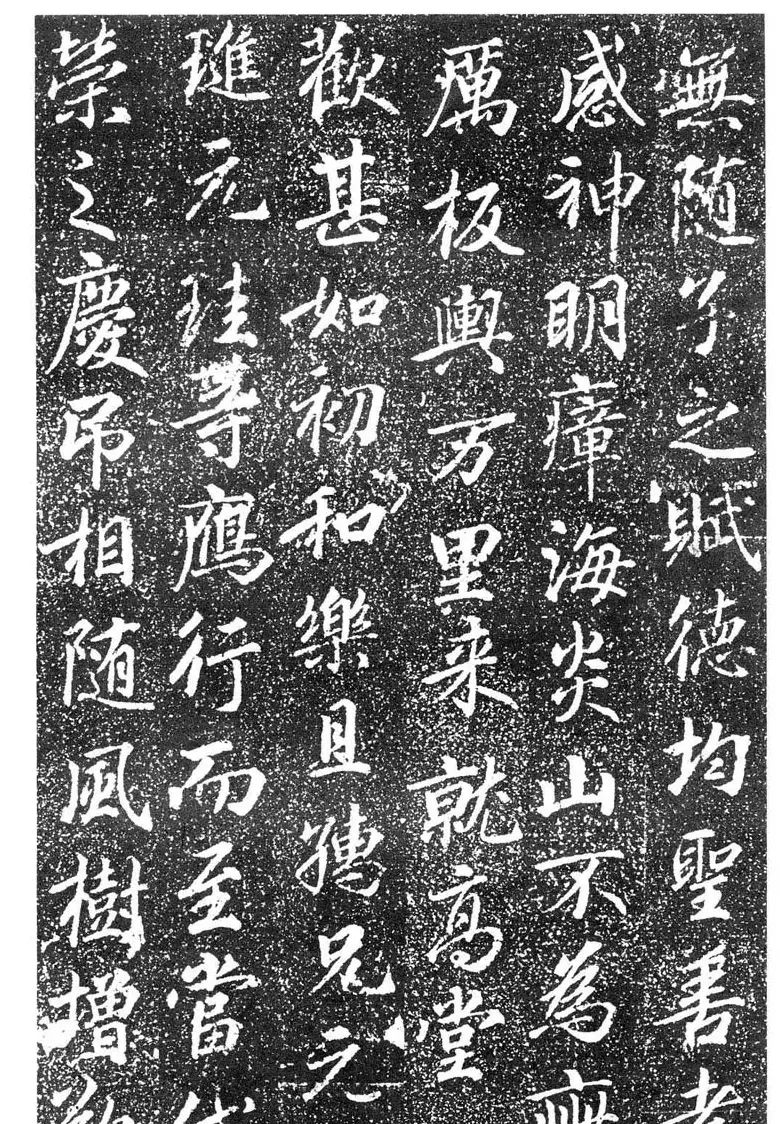 無随子之賦德均聖善孝
感神明瘴海炎山不為癘
厲板輿万里来就高堂
歡甚如初和樂且孺兄元
璡元珪等鴈行而至當代
榮之慶吊相随風樹增